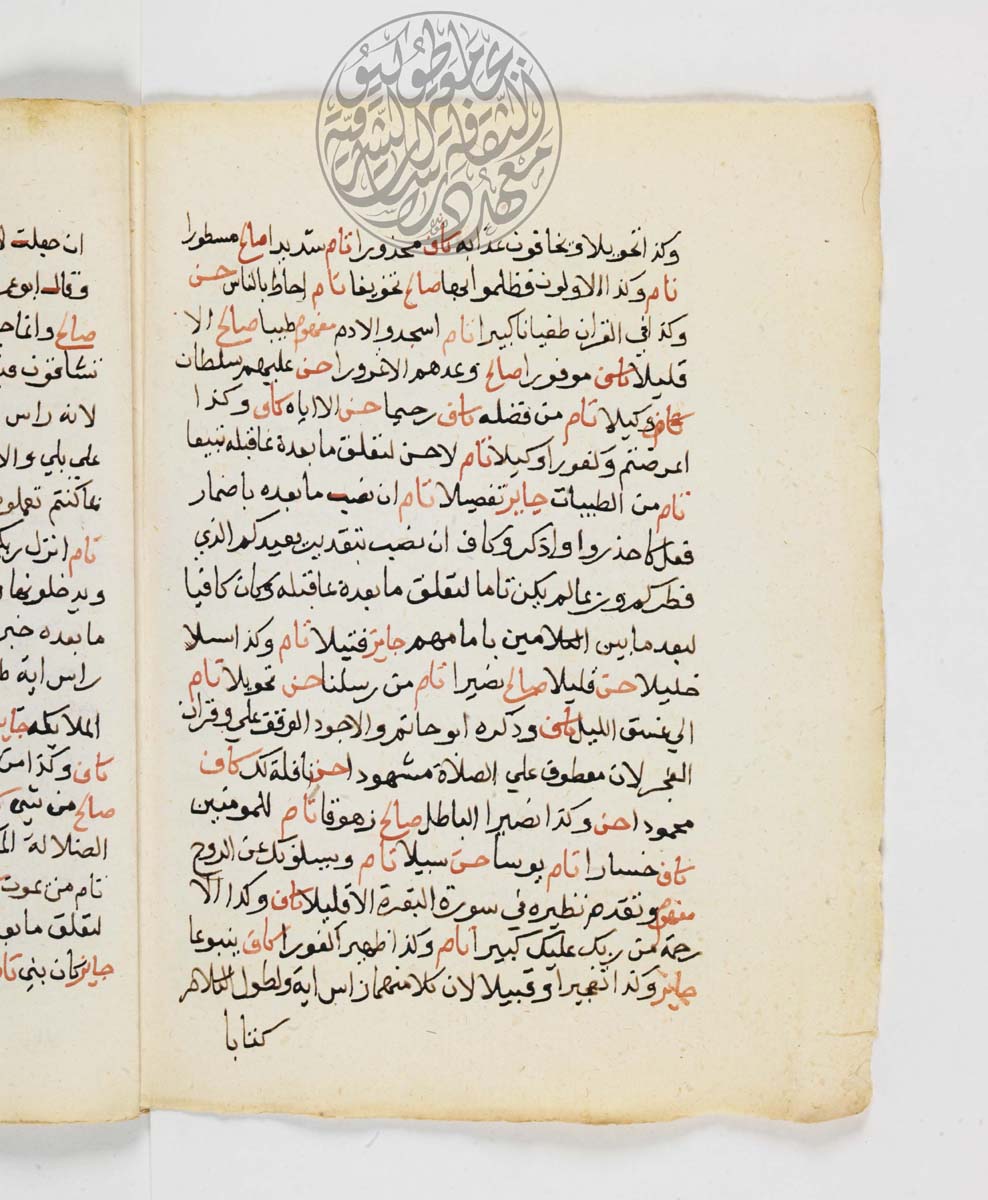 معهد الثقافة والدراسات الشرقية جامعة طوكيو
وكذا تحويلا ويخافون عذابه كاف محذورا تام شديدا صالح مسطورا
تام وكذا الاولون فظلموا بها صالح تخويفا تام احاط بالناس حسن
وكذا في القران طغيانا كبيرا تام اسجدوا لادم مفهوم طيبا صالح الا
قليلا كاف موفورا صالح وعدهم الا غرورا حسن عليهم سلطان
كاف وكيلا تام من فضله كاف رحيما حسن الا اياه كاف وكذا
اعرضتم وكفورا وكيلا تام لا حسن لتعلق ما بعده بما قبله تبيعا
تام من الطيبات جايز تفصيلا تام ان نصب ما بعده باضمار
فعل كاحذروا واذكر وكاف ان نصب بتقدير يعيدكم الذي
فطركم وربما لم يكن تاما لتعلق ما بعده بما قبله وكان كافيا
لبعد ما بين الكلامين بامامهم جايز فتيلا تام وكذا سبيلا
خليلا حسن قليلا صالح نصيرا تام من رسلنا حسن تحويلا تام
الي غسق الليل كاف وذكره ابو حاتم والاجود الوقف علي وقران
الفجر لانه معطوف علي الصلاة مشهودا حسن نافلة لك كاف
محمودا حسن وكذا نصيرا الباطل صالح زهوقا تام للمومنين
كاف خسارا تام يوسا حسن سبيلا تام ويسلونك عن الروح
مفهوم وتقدم نظيره في سورة البقرة الا قليلا كاف وكذا الا
رحمة من ربك عليك كبيرا تام وكذا ظهيرا كفورا كاف ينبوعا
جايز وكذا تفجيرا وقبيلا لان كلا منهما راس اية ولطول الكلام
كتابا
ان جعلت
وقال ابو عم
صالح وانما
تشاقون
لانه راس
علي بلي والا
بما كنتم تعملو
تام انزل ربك
ويدخلونها
ما بعده خبر
راس اية
الملايكة جايز
كاف وكذا من
صالح من شي
الضلالة
تام من يموت
لتعلق ما بعد
جايز كان بني